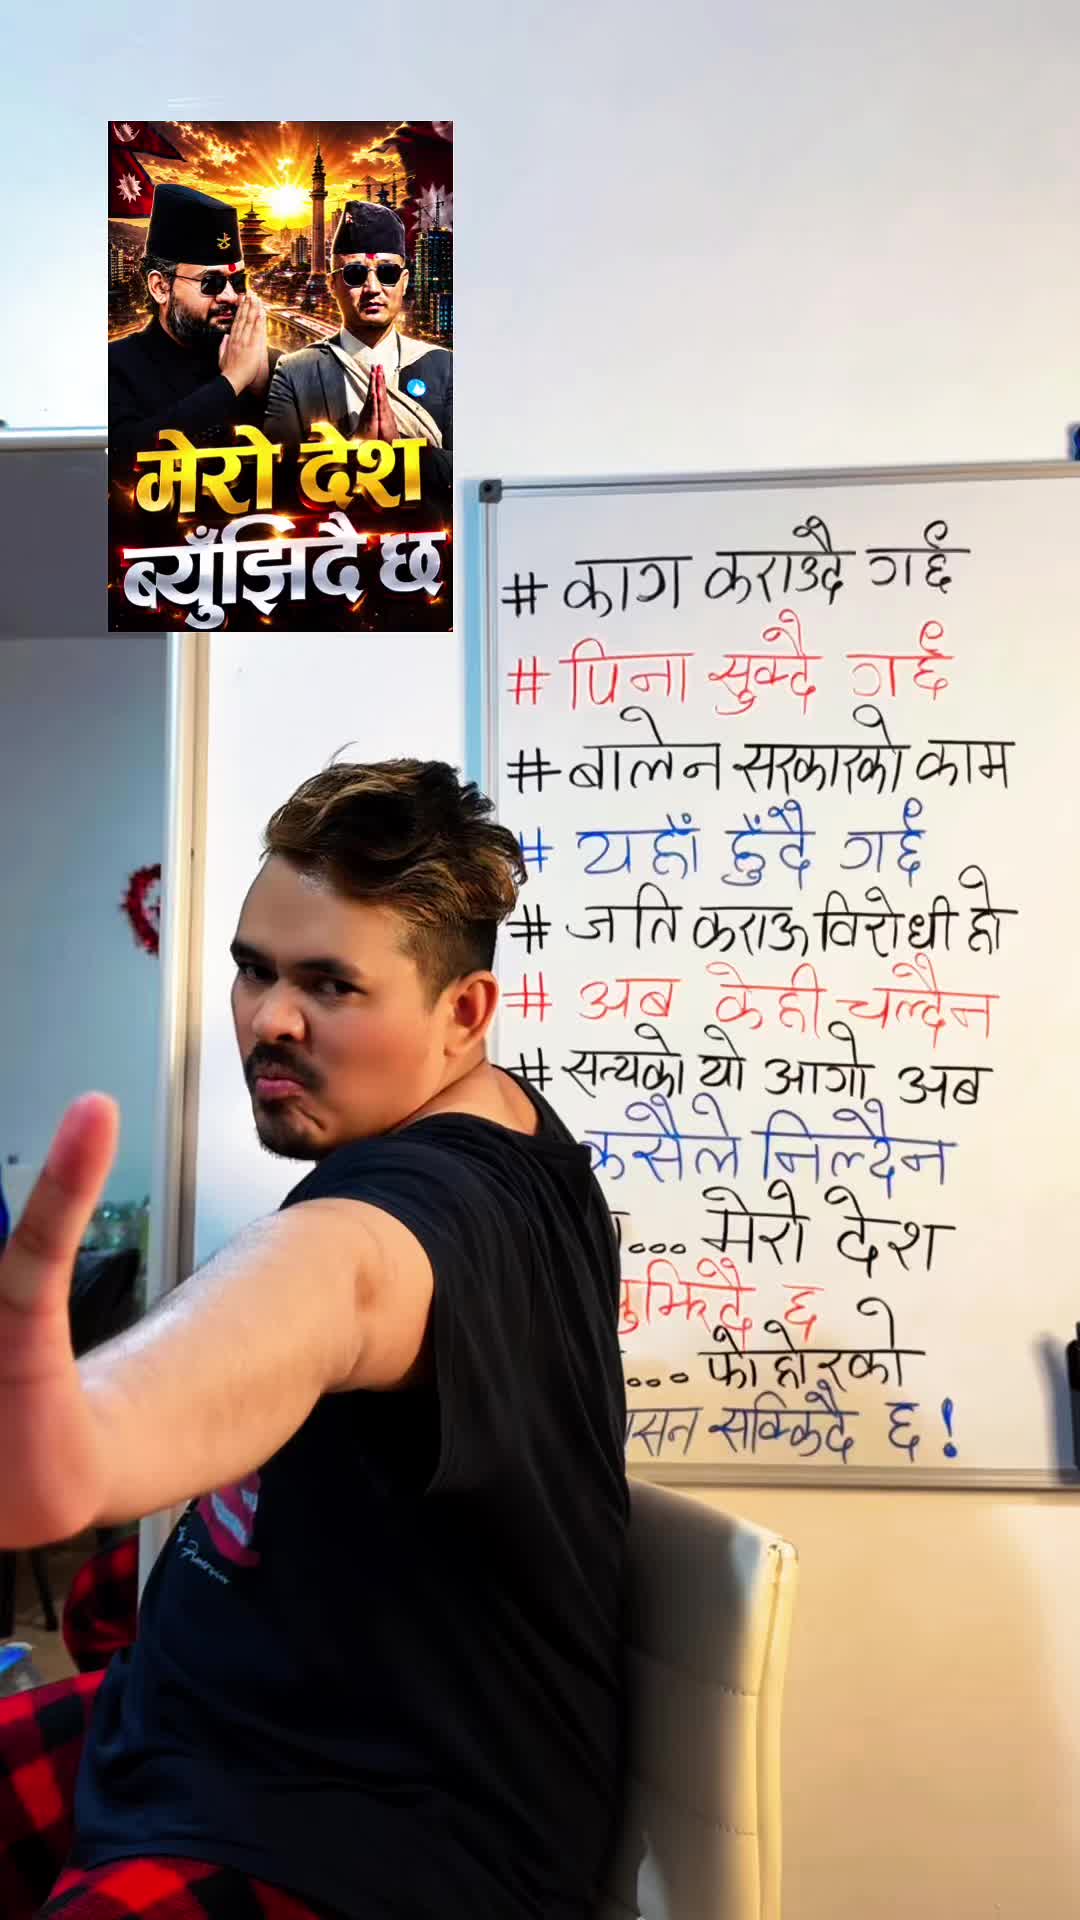 मेरो देश
ब्युँझिदै छ
# काग कराउदै गर्छ
# पिना सुक्दै गर्छ
# बालेन सरकारको काम
# यहाँ हुँदै गर्छ
# जति कराऊ विरोधी हो
# अब केही चल्दैन
# सत्यको यो आगो अब
कसैले निल्दैन
... मेरो देश
छ
... फोहोरको
सक्किदै छ!